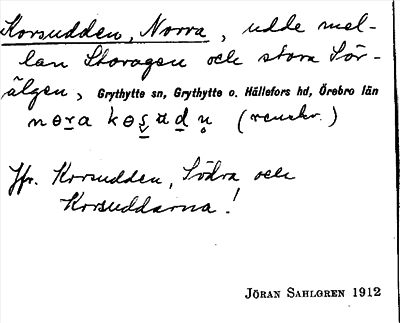 Korsudden, Norra, udde mel-
lan Storagen och stora Sör-
älgen, Grythytte sn, Grythytte o. Hällefors hd, Örebro län
nɵra kɵʂudn̥ (renskr.)
Jfr. Korsudden, Södra och
Korsuddarna!
JÖRAN SAHLGREN 1912